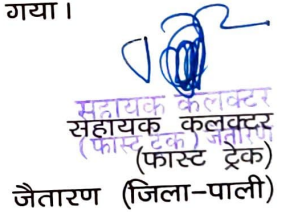 गया।
सहायक कलक्टर
(फास्ट ट्रेक) जैतारण
सहायक कलक्टर
(फास्ट ट्रेक)
जैतारण (जिला-पाली)